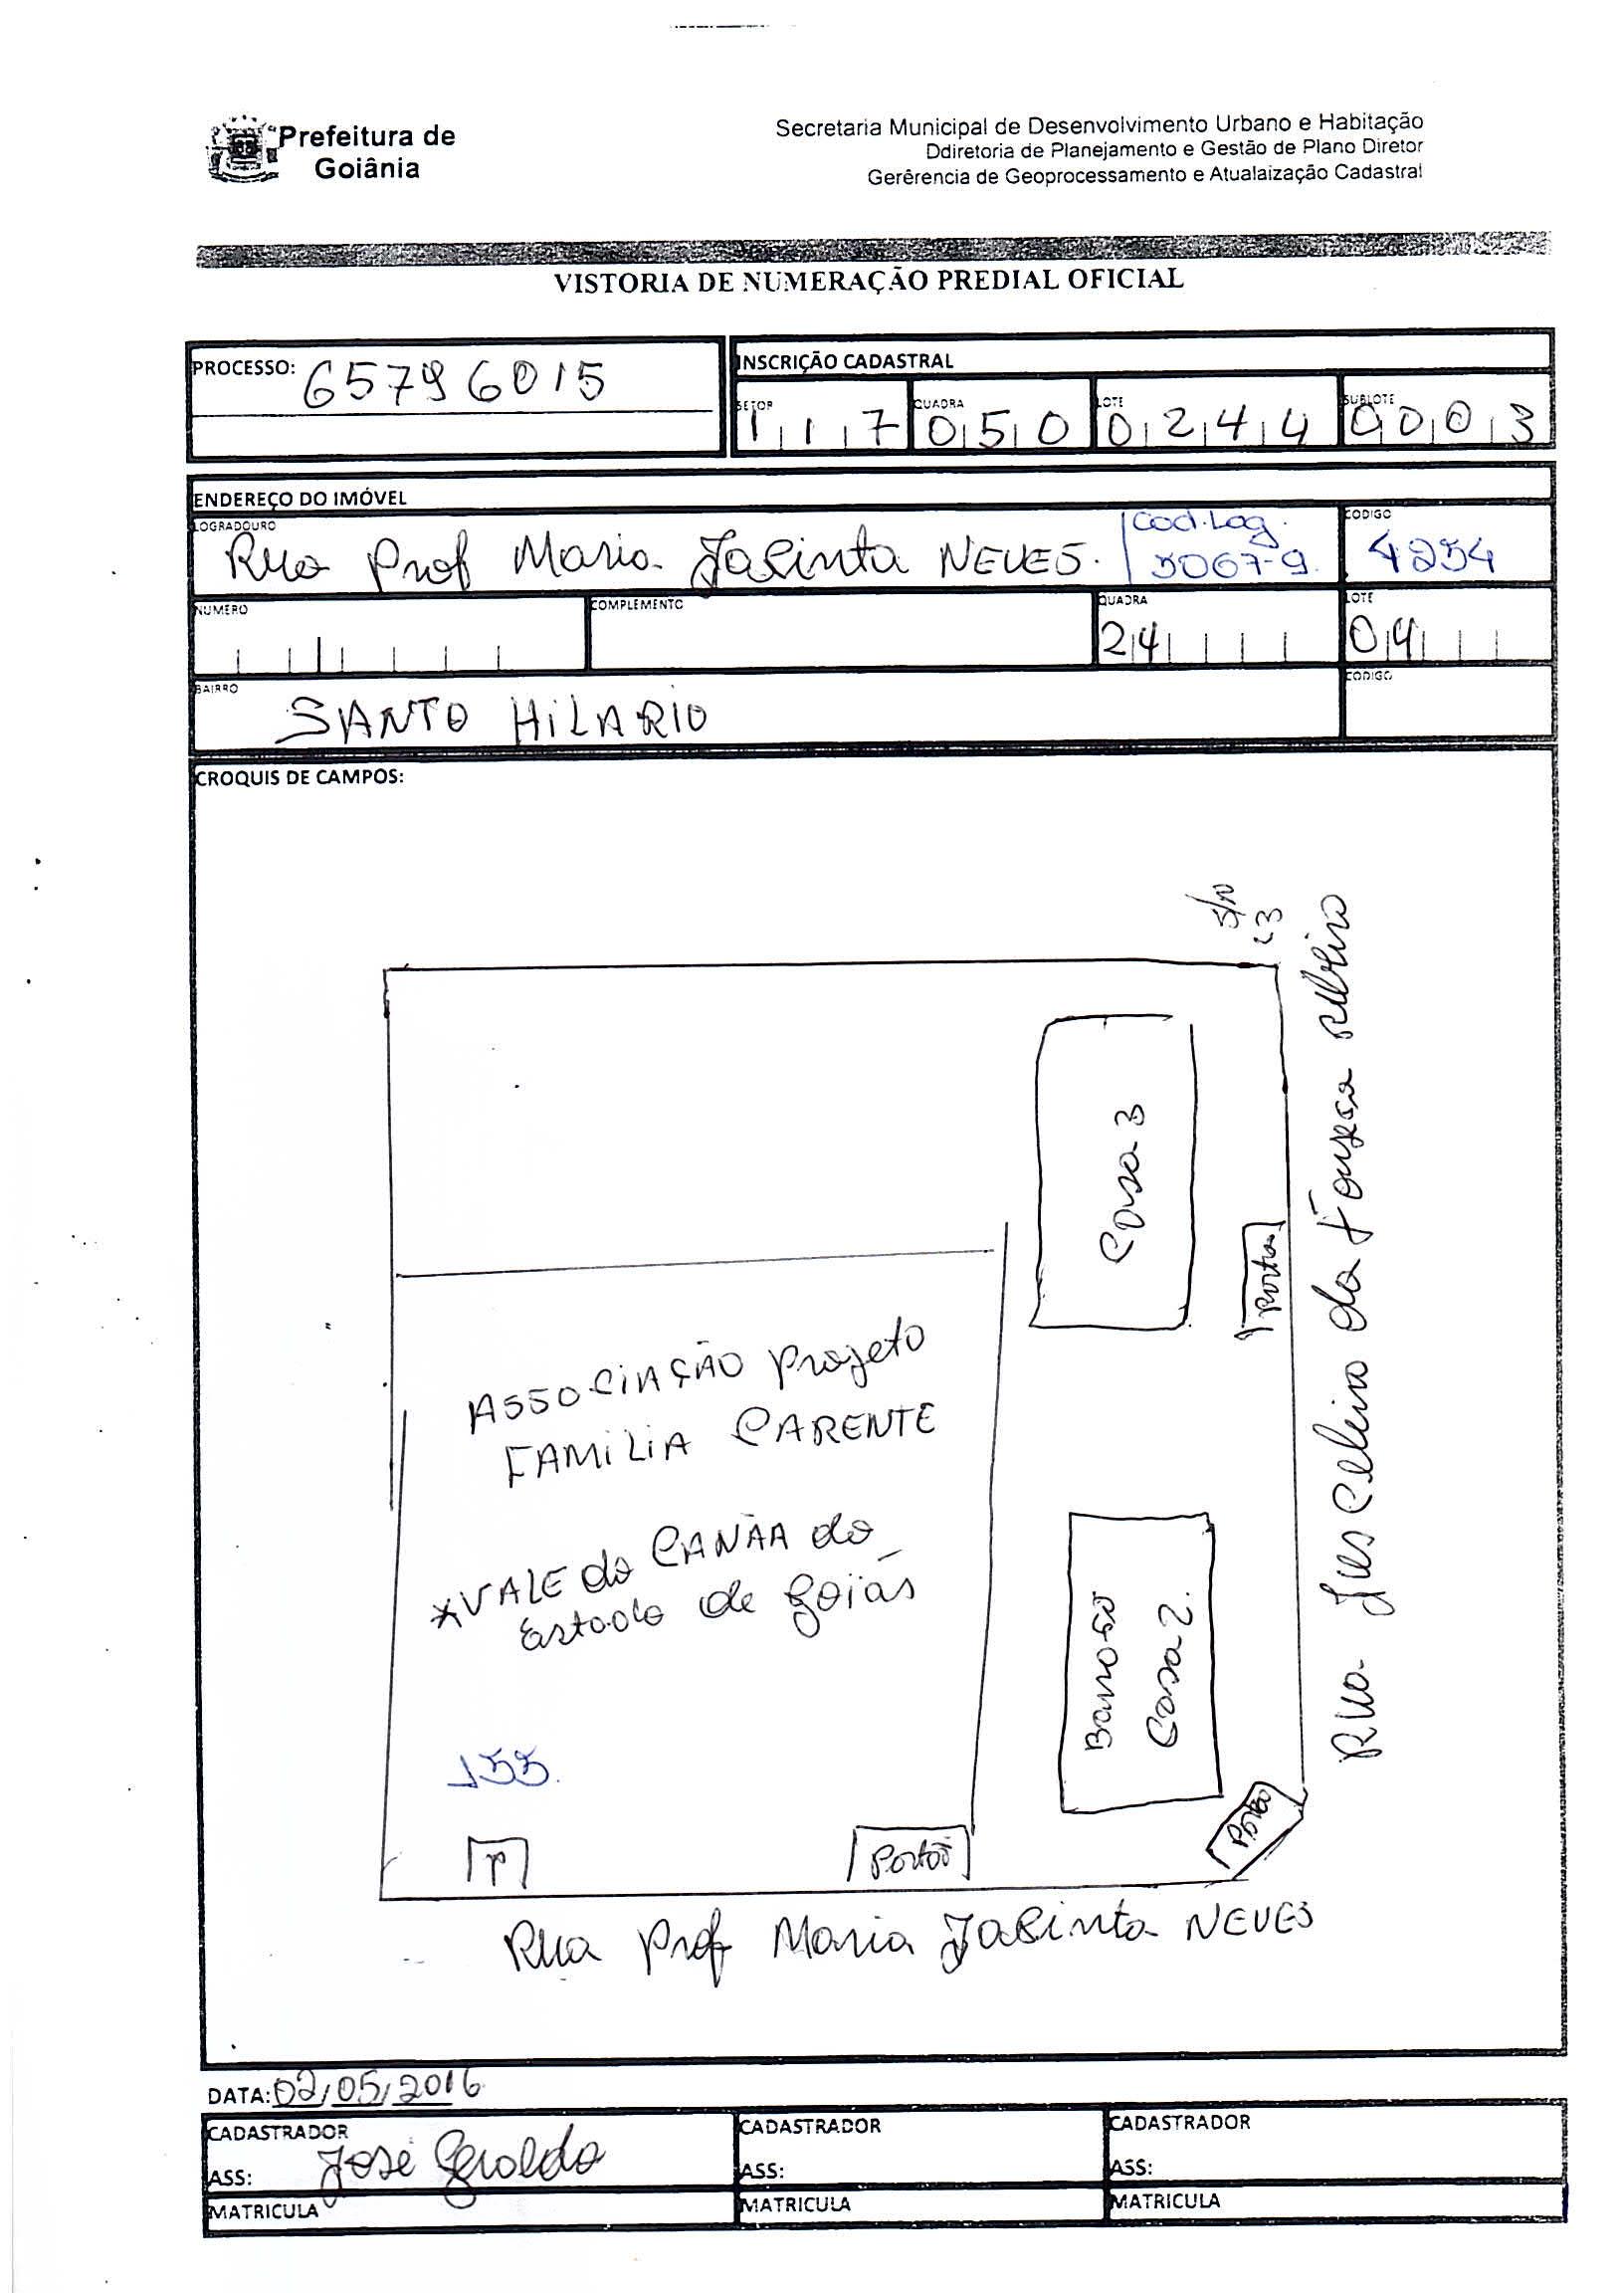 Prefeitura de
Goiânia
Secretaria Municipal de Desenvolvimento Urbano e Habitação
Ddiretoria de Planejamento e Gestão de Plano Diretor
Gerêrencia de Geoprocessamento e Atualaização Cadastral
VISTORIA DE NUMERAÇÃO PREDIAL OFICIAL
PROCESSO: 65796015
INSCRIÇÃO CADASTRAL
SETOR QUADRA LOTE SUBLOTE
117 050 0244 0003
ENDEREÇO DO IMÓVEL
LOGRADOURO CODIGO
Rua Prof Maria Jacinta NEVES. Cod.Log. 5067-9. 4254
NUMERO COMPLEMENTO QUADRA LOTE
24 04
BAIRRO CODIGO
SANTO HILARIO
CROQUIS DE CAMPOS:
S/N
L3
Casa 3
Portão
Rua Juscelino da Fonseca Ribeiro
ASSOCIAÇÃO Projeto
FAMILIA CARENTE
*VALE do CANÃA do
Estado de Goiás
Casa 2.
155.
P
Portão
Portão
Rua Prof Maria Jacinta NEVES
DATA: 02/05/2016
CADASTRADOR CADASTRADOR CADASTRADOR
ASS: José Geraldo ASS: ASS:
MATRICULA MATRICULA MATRICULA